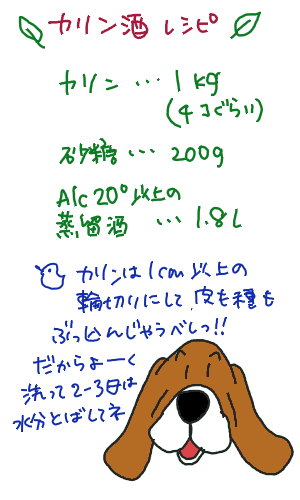 カリン酒 レシピ
カリン … 1kg
(4コぐらい)
砂糖 … 200g
Alc20°以上の
蒸留酒 … 1.8L
カリンは1cm以上の
輪切りにして、皮も種も
ぶっ込んじゃうべしっ!!
だからよーく
洗って2~3日は
水分とばしてネ